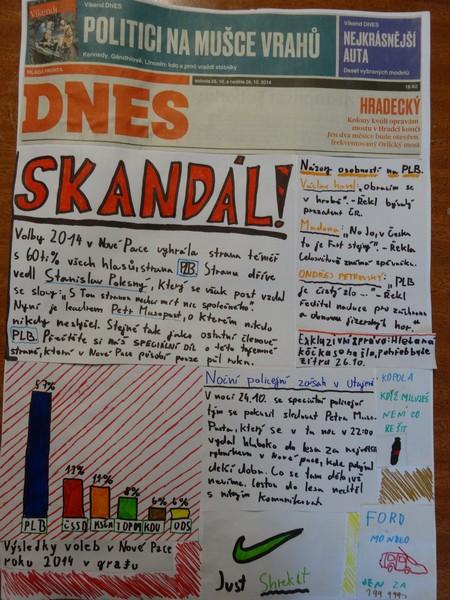 Víkend DNES
POLITICI NA MUŠCE VRAHŮ
Kennedy, Gándhíové, Lincoln: kdo a proč vraždí státníky
Víkend DNES
NEJKRÁSNĚJŠÍ
AUTA
Deset vybraných modelů
Víkend
MLADÁ FRONTA
sobota 25. 10. a neděle 26. 10. 2014
DNES
HRADECKÝ
Kolony kvůli opravám
mostu v Hradci končí
Jen dva měsíce bude otevřen
frekventovaný Orlický most
SKANDÁL!
Volby 2014 v Nové Pace vyhrála strana téměř
s 60% všech hlasů, strana PLB. Stranu dříve
vedl Stanislav Pokesný, který se však post vzdal
se slovy: „S Tou stranou nechci mít nic společného".
Nyní je leaderem Petr Musopust, o kterém nikdo
nikdy neslyšel. Stejně tak jako ostatní členové
PLB. Přečtěte si náš SPECIÁLNÍ DÍL o této tajemné
straně, která v Nové Pace působí pouze půl roku.
Názory osobností na PLB.
Václav havel: „Obracím se
v hrobě". - Řekl bývalý
prezedent ČR.
Madona: „No Jo, v Česku
to je Fast stejný". - Řekla
Celosvětově známá zpěvačka.
ONDŘEJ PETROVSKÝ: „PLB
je čistý zlo ..." - Řekl
Ředitel nadace pro záchranu
a obnovu jizerských hor
Exkluzivní zpráva: Hledaná
kočka se našla, pohřeb bude
zítra 26.10.
57%
13%
11%
8%
6%
6%
PLB
ČSSD
KSČM
TOP09
KDU
ODS
Výsledky voleb v Nové Pace
roku 2014 v grafu
Noční policejní zásah v Utajení
V noci 24.10. se speciální policejní
tým se pokusil sledovat Petra Muso-
Pusta, který se v tu noc v 22:00
vydal hluboko do lesa za největším
rybníkem v Nové pace, kde pobýval
delší dobu. Co se tam dělo, už
nevíme. Cestou do lesa nechtěl
s nikým komunikovat.
Just Shrekit
KOFOLA
KDYŽ MILUJEŠ
NENÍ CO
ŘEŠIT
FORD
MONDEO
JEN ZA